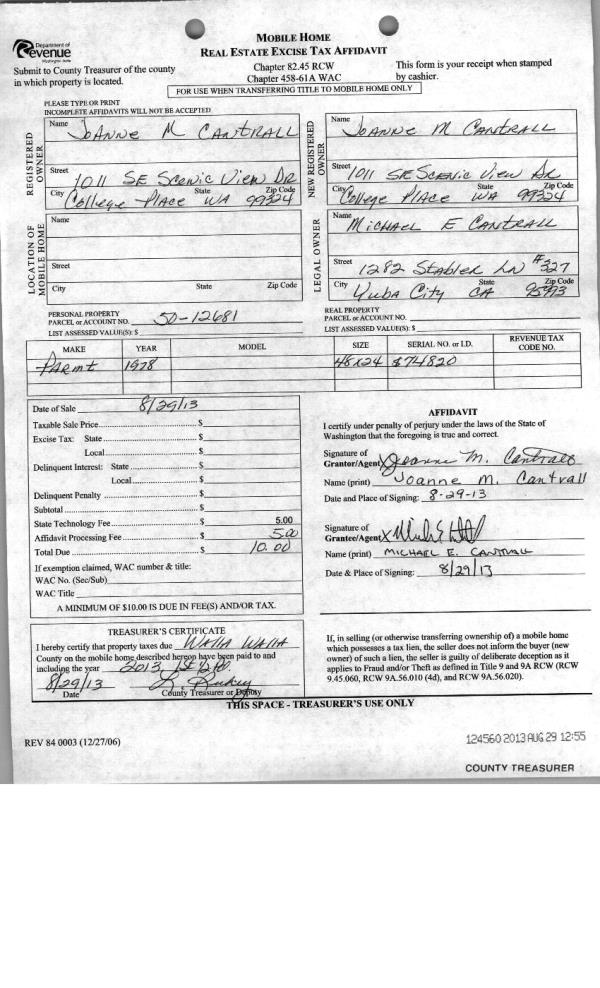 Department of
Revenue
Washington State
MOBILE HOME
REAL ESTATE EXCISE TAX AFFIDAVIT
Submit to County Treasurer of the county
in which property is located.
Chapter 82.45 RCW
Chapter 458-61A WAC
This form is your receipt when stamped
by cashier.
FOR USE WHEN TRANSFERRING TITLE TO MOBILE HOME ONLY
PLEASE TYPE OR PRINT
INCOMPLETE AFFIDAVITS WILL NOT BE ACCEPTED
REGISTERED OWNER
Name JOANNE M CANTRALL
Street 1011 SE Scenic View DR
City College Place State WA Zip Code 99324
NEW REGISTERED OWNER
Name JOANNE M CANTRALL
Street 1011 SE Scenic View DR
City College Place State WA Zip Code 99324
LOCATION OF MOBILE HOME
Name
Street
City State Zip Code
LEGAL OWNER
Name MICHAEL E CANTRALL
Street 1282 Stabler LN #327
City Yuba City State CA Zip Code 95993
PERSONAL PROPERTY
PARCEL or ACCOUNT NO. 50-12681
LIST ASSESSED VALUE(S): $
REAL PROPERTY
PARCEL or ACCOUNT NO.
LIST ASSESSED VALUE(S): $
MAKE YEAR MODEL SIZE SERIAL NO. or I.D. REVENUE TAX CODE NO.
PARMT 1978 48x24 S74820
Date of Sale 8/29/13
Taxable Sale Price $
Excise Tax: State $
Local $
Delinquent Interest: State $
Local $
Delinquent Penalty $
Subtotal $
State Technology Fee $ 5.00
Affidavit Processing Fee $ 5.00
Total Due $ 10.00
If exemption claimed, WAC number & title:
WAC No. (Sec/Sub)
WAC Title
A MINIMUM OF $10.00 IS DUE IN FEE(S) AND/OR TAX.
AFFIDAVIT
I certify under penalty of perjury under the laws of the State of
Washington that the foregoing is true and correct.
Signature of
Grantor/Agent X Joanne M. Cantrall
Name (print) Joanne M. Cantrall
Date and Place of Signing: 8-29-13
Signature of
Grantee/Agent X
Name (print) MICHAEL E. CANTRALL
Date & Place of Signing: 8/29/13
TREASURER'S CERTIFICATE
I hereby certify that property taxes due Walla Walla
County on the mobile home described hereon have been paid to and
including the year 2013
8/29/13
Date County Treasurer or Deputy
If, in selling (or otherwise transferring ownership of) a mobile home
which possesses a tax lien, the seller does not inform the buyer (new
owner) of such a lien, the seller is guilty of deliberate deception as it
applies to Fraud and/or Theft as defined in Title 9 and 9A RCW (RCW
9.45.060, RCW 9A.56.010 (4d), and RCW 9A.56.020).
THIS SPACE - TREASURER'S USE ONLY
REV 84 0003 (12/27/06)
124560 2013 AUG 29 12:55
COUNTY TREASURER